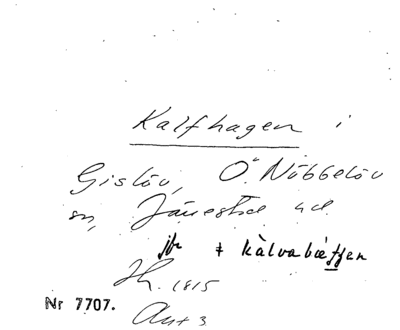 Kalfhagen i
Gislöv, Ö. Nöbbelöv
sn, Järrestad hd.
jfr + kàlvabætjen
Jh. 1815
Akt 3
Nr 7707.